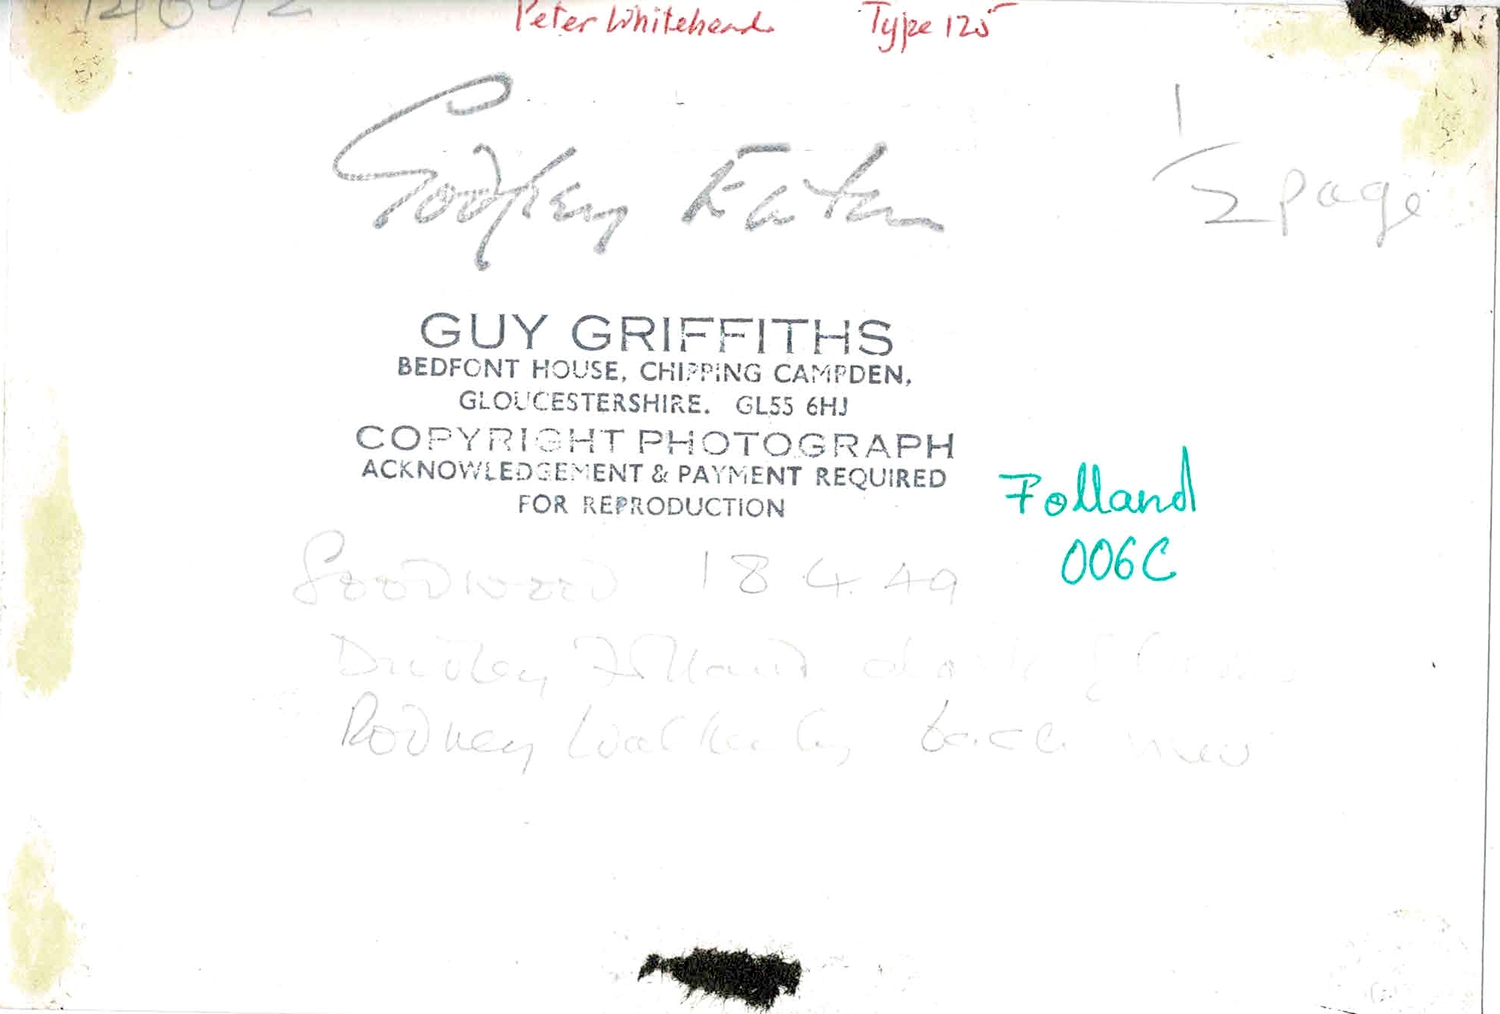 Peter Whitehead Type 125
Godfrey Eaton
1/2 page
GUY GRIFFITHS
BEDFONT HOUSE, CHIPPING CAMPDEN,
GLOUCESTERSHIRE. GL55 6HJ
COPYRIGHT PHOTOGRAPH
ACKNOWLEDGEMENT & PAYMENT REQUIRED
FOR REPRODUCTION
Folland
006C
Goodwood 18.4.49
Dudley Folland
Rodney